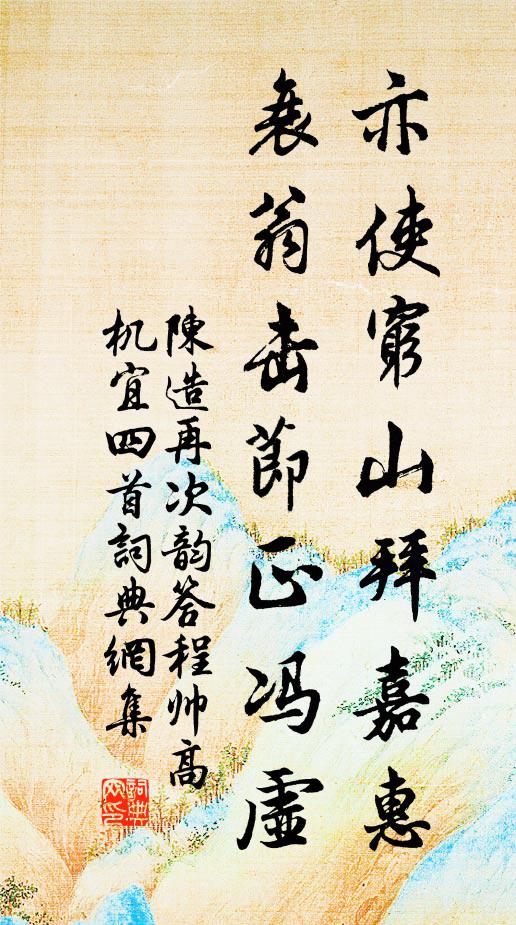 亦使窮山拜嘉惠
衰翁击節正冯虛
陳造再次韵答程帅高
机宜四首詞典網集